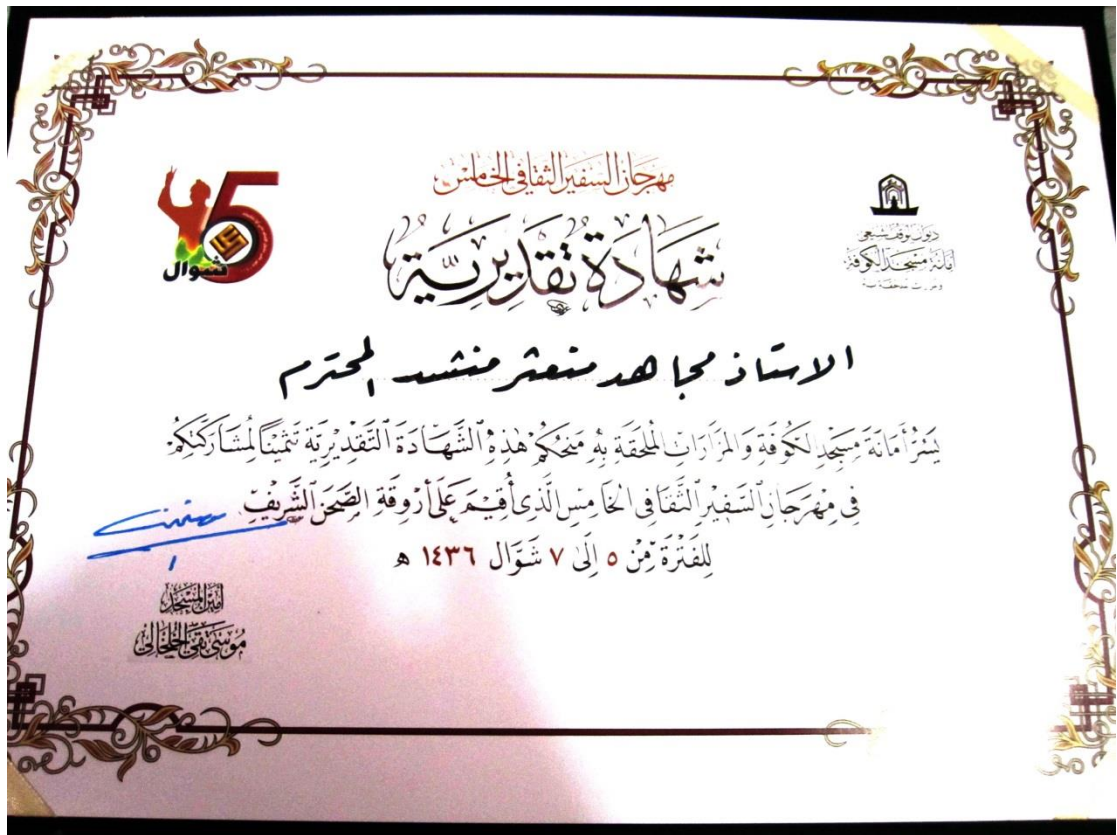 مهرجان السفير الثقافي الخامس
شهادة تقديرية
5
شوال
ديوان الوقف الشيعي
امانة مسجد الكوفة
الاستاذ مجاهد منعثر منشد المحترم
يَسُرُّ أَمَانَةَ مَسْجِدِ الكُوفَةِ وَالمَزَارَاتِ المُلحَقَةِ بِهِ مَنحَكُم هٰذِهِ الشَّهَادَةَ التَّقْدِيرِيَّةَ تَثْمِيْنًا لِمُشَارَكَتِكُمْ
فِي مِهْرَجَانِ السَّفِيْرِ الثَّقَافِي الخَامِسِ الَّذِي أُقِيْمَ عَلَى أَرْوِقَةِ الصَّحنِ الشَّرِيْفِ
لِلفَتْرَةِ مِنْ ٥ إِلَى ٧ شَوَّال ١٤٣٦ ه
أمين المسجد
موسى تقي الخلخالي